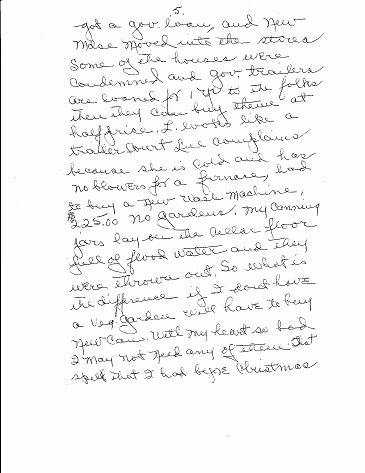 5.
got a gov. loan, and New
Mdse moved into the stores
Some of the houses were
Condemned and gov. trailers
are loaned for 1 yr to the folks
then they can buy them at
half price. It looks like a
trailer court Sue complains
because she is cold and has
no blowers for a furnace, had
to buy a new Wash Machine,
$25.00 no gardens, my canning
jars lay on the cellar floor
full of flood water and they
were thrown out. So what is
the difference if I dont have
a veg. garden will have to buy
new cans. With my heart so bad
I may not need any of them that
spell that I had before Christmas